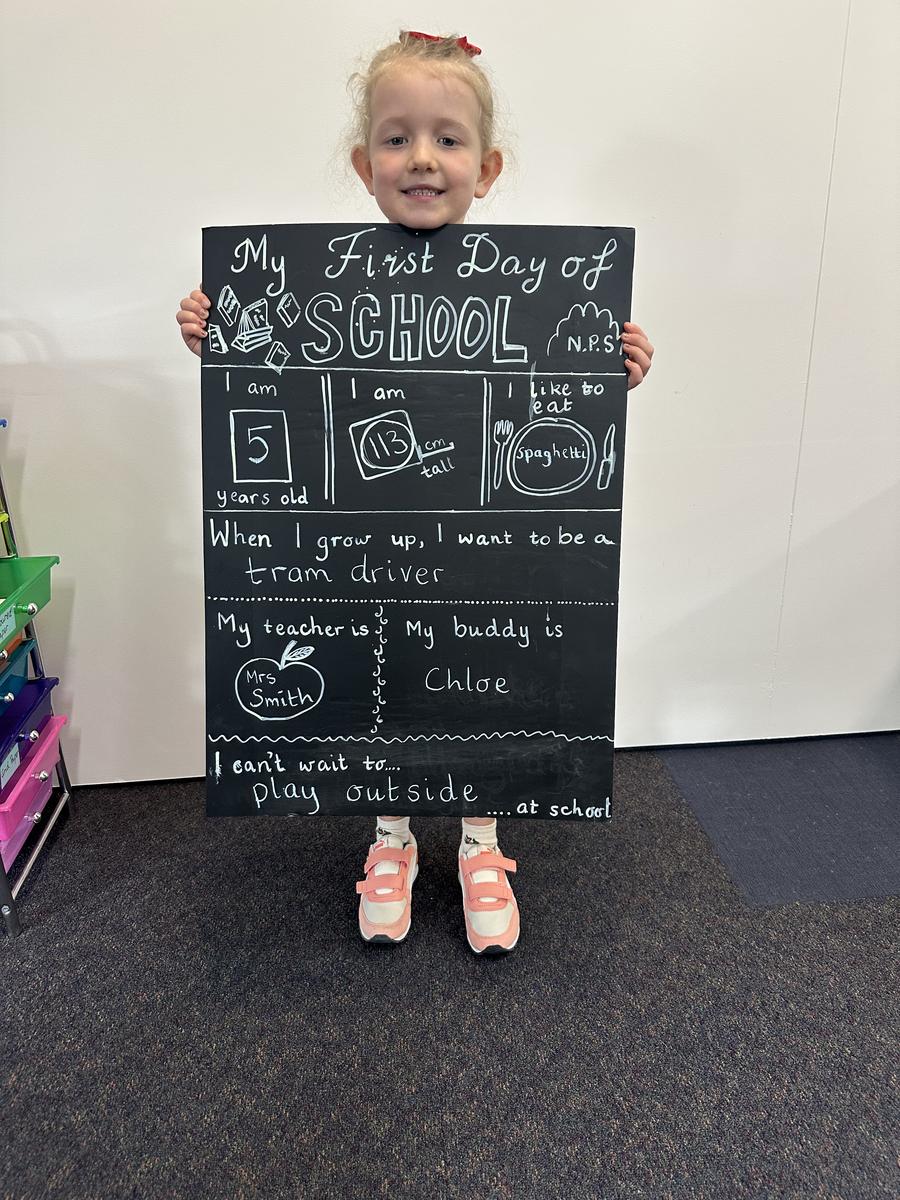 My First Day of
SCHOOL
N.P.S
I am
5
years old
I am
113 cm
tall
I like to
eat
spaghetti
When I grow up, I want to be a
tram driver
My teacher is
Mrs
Smith
My buddy is
Chloe
I can't wait to....
play outside
....at school